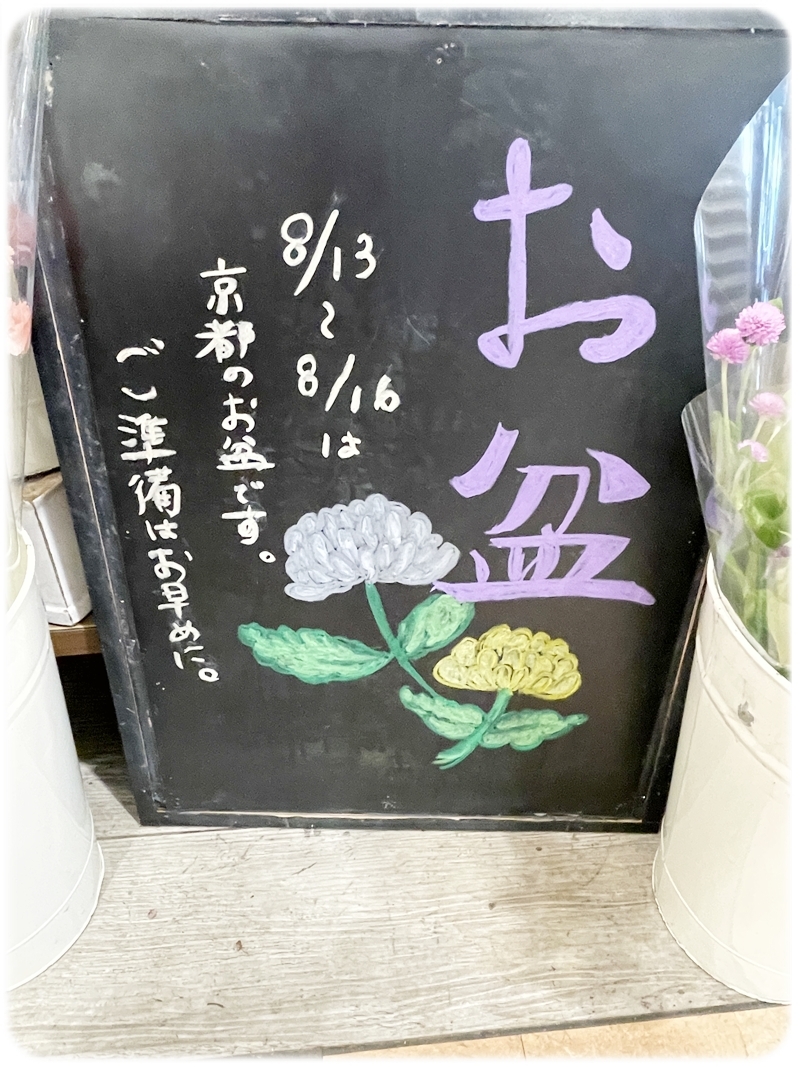 お盆
8/13
〜
8/16
は
京都のお盆です。
ご準備はお早めに。